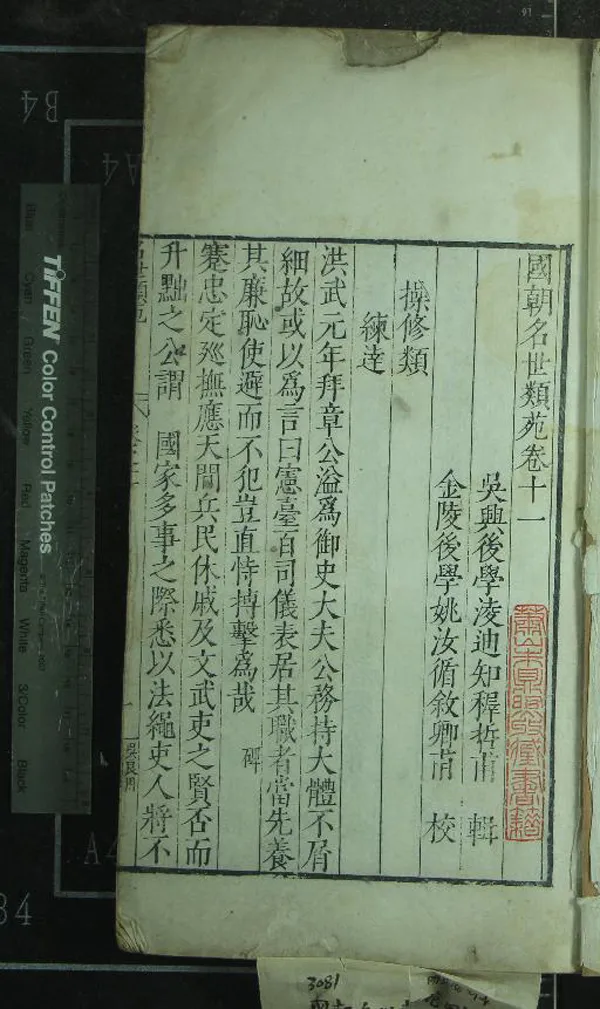 國朝名世類苑卷十一
吳興後學淩迪知穉哲甫 輯
金陵後學姚汝循敘卿甫 校
操修類
練達
洪武元年拜章公溢爲御史大夫公務持大體不屑
細故或以爲言曰憲臺百司儀表居其職者當先養
其廉恥使避而不犯豈直恃搏擊爲哉 碑
蹇忠定廵撫應天間兵民休戚及文武吏之賢否而
升黜之公謂 國家多事之際悉以法繩吏人將不
名世類苑
TIFFEN Color Control Patches
Blue Cyan Green Yellow Red Magenta White 3/Color Black
B4
A4
A4
B4
3081